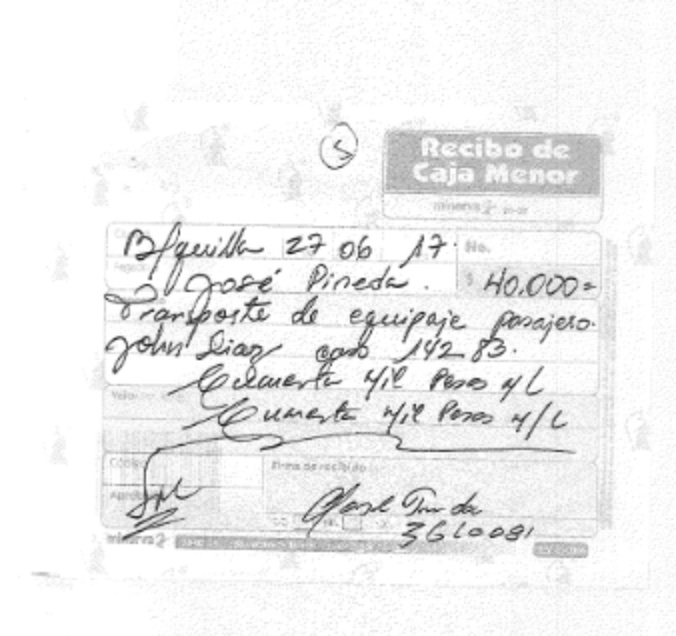 5
Recibo de
Caja Menor
minerva
B/quilla 27 06 17.
No.
José Pineda. $ 40.000=
Transporte de equipaje pasajero.
John Diaz caso 142 83.
Cuarenta Mil Pesos M/L
Cuarenta Mil Pesos M/L
Firma de recibido
José Pineda
minerva